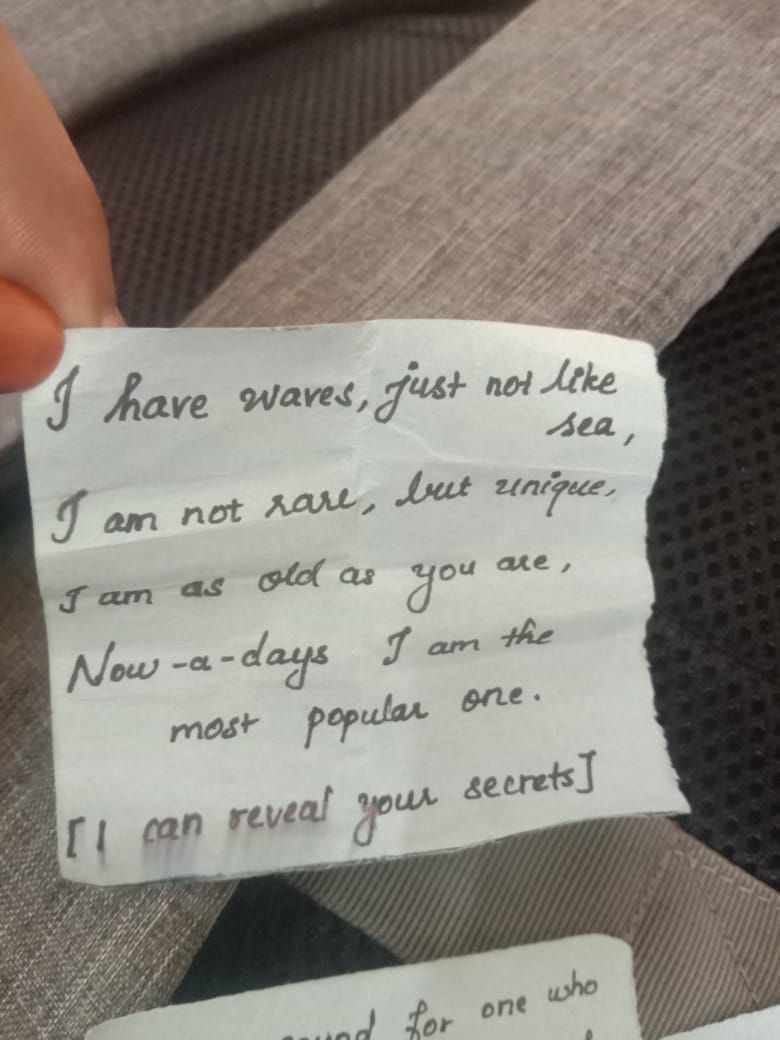 I have waves, just not like
sea,
I am not rare, but unique,
I am as old as you are,
Now-a-days I am the
most popular one.
[I can reveal your secrets]
for one who